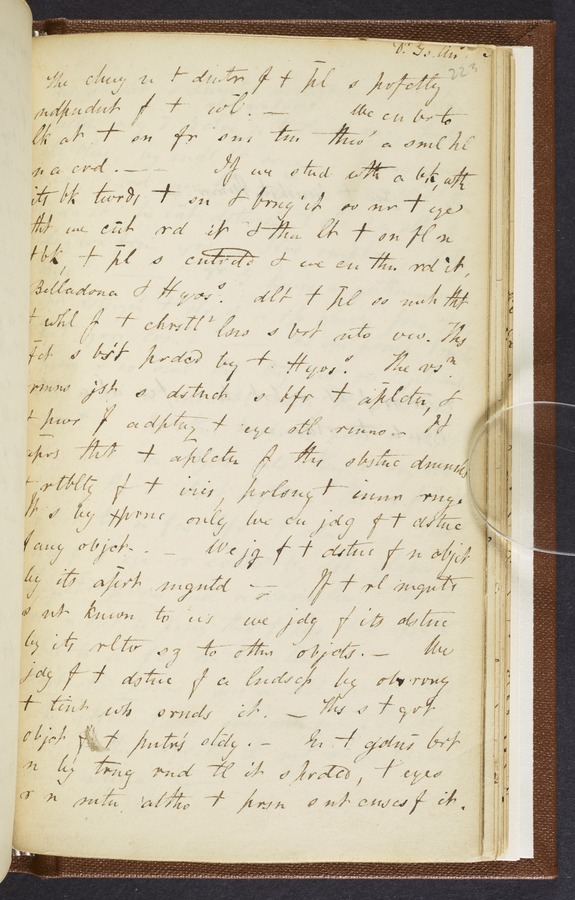 223
The chug n t dmtr f t pl s prfctly
ndpndnt f t wl. — We cn br to
lk at t sn fr sm tm thro' a sml hl
n a crd. — If we stnd wth a bk, wth
its bk twrds t sn & brng it so nr t eye
tht we cnt rd it & thn lt t sn fl n
t bk, t pl s cntrctd & we cn thn rd it,
Belladona & Hyos.s dlt t pl so mch tht
t whl f t chrstl.l lns s brt nto vw. Ths
fct s bst prdcd by t Hyos.s The vs.n
rmns jst s dstnct s bfr t aplctn, &
t pwr f adptng t eye stl rmns. It
aprs tht t aplctn f ths sbstnc dmnshs
t rtblty f t iris, t innr rng.
It s by xprnc only we cn jdg f t dstnc
f any objct. — We jg f t dstnc f n objct
by its aprt mgntd — If t rl mgntd
s nt known to us we jdg f its dstnc
by its rltv sz to othr objcts. — We
jdg f t dstnc f a lndscp by obsrvng
t tint wh srnds it. — Ths s t grt
objct f t pntr's stdy. — In t gdns brt
n by trng rnd tl it s prdcd, t eyes
r n mtn, altho t prsn s nt cnscs f it.